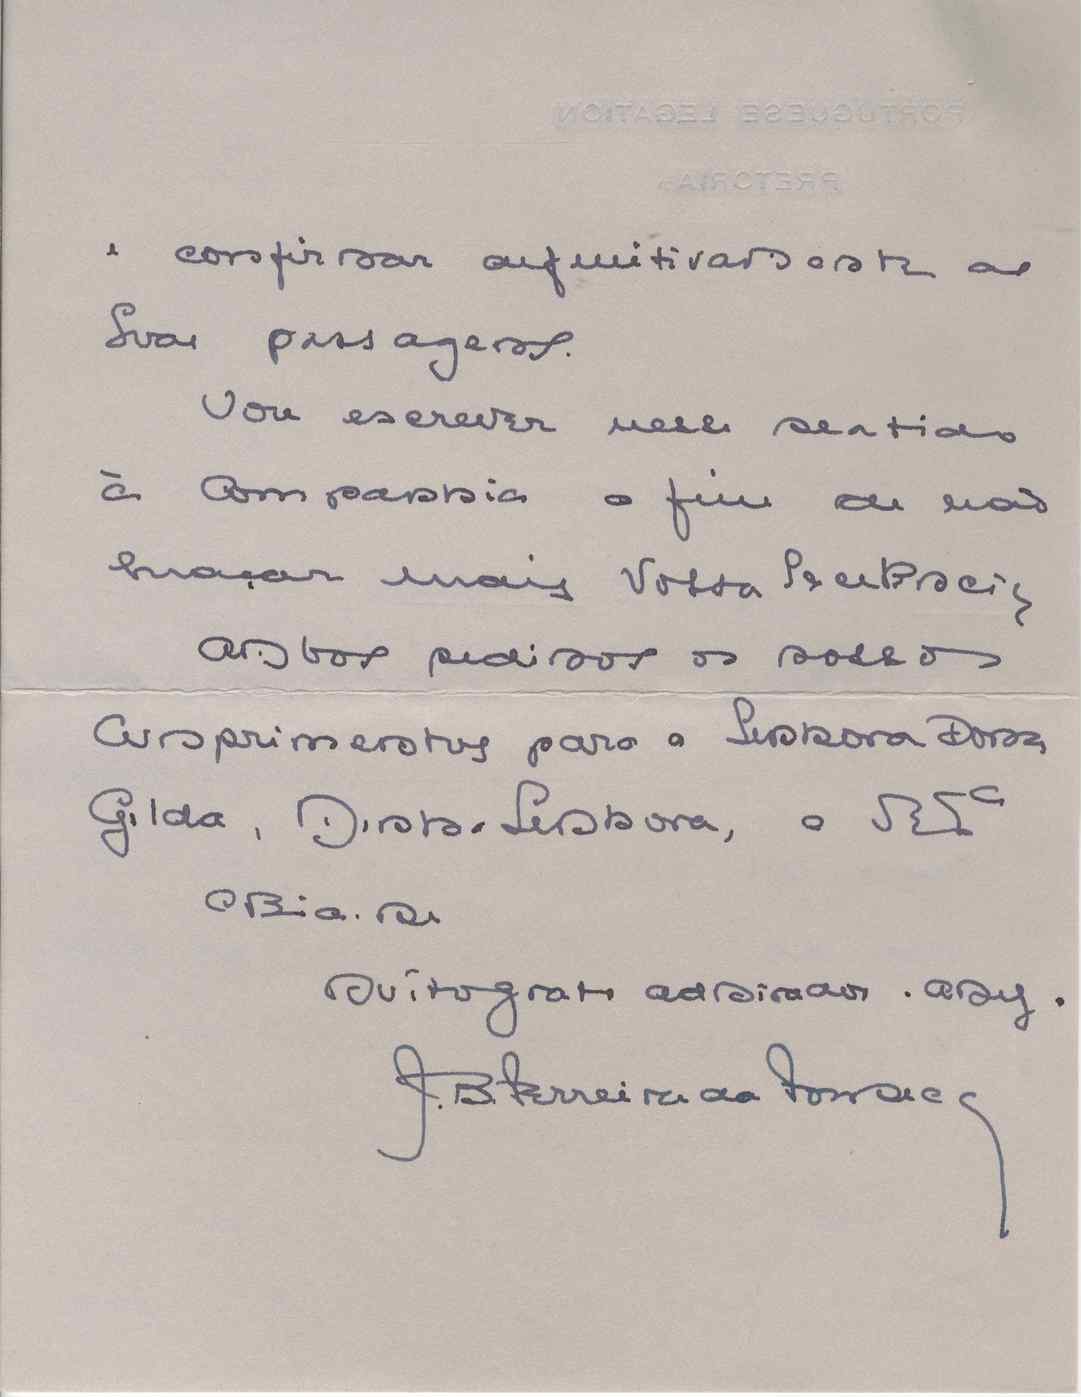 PORTUGUESE LEGATION
PRETORIA
e confirmar definitivamente as
Suas passagens.
Vou escrever nesse sentido
à Companhia a fim de não
maçar mais Vossa Excelência
Ambos pedimos os nossos
Cumprimentos para a Senhora Dona
Gilda, Minha Senhora, e
muito grato admirador
J. B. Ferreira da Fonseca